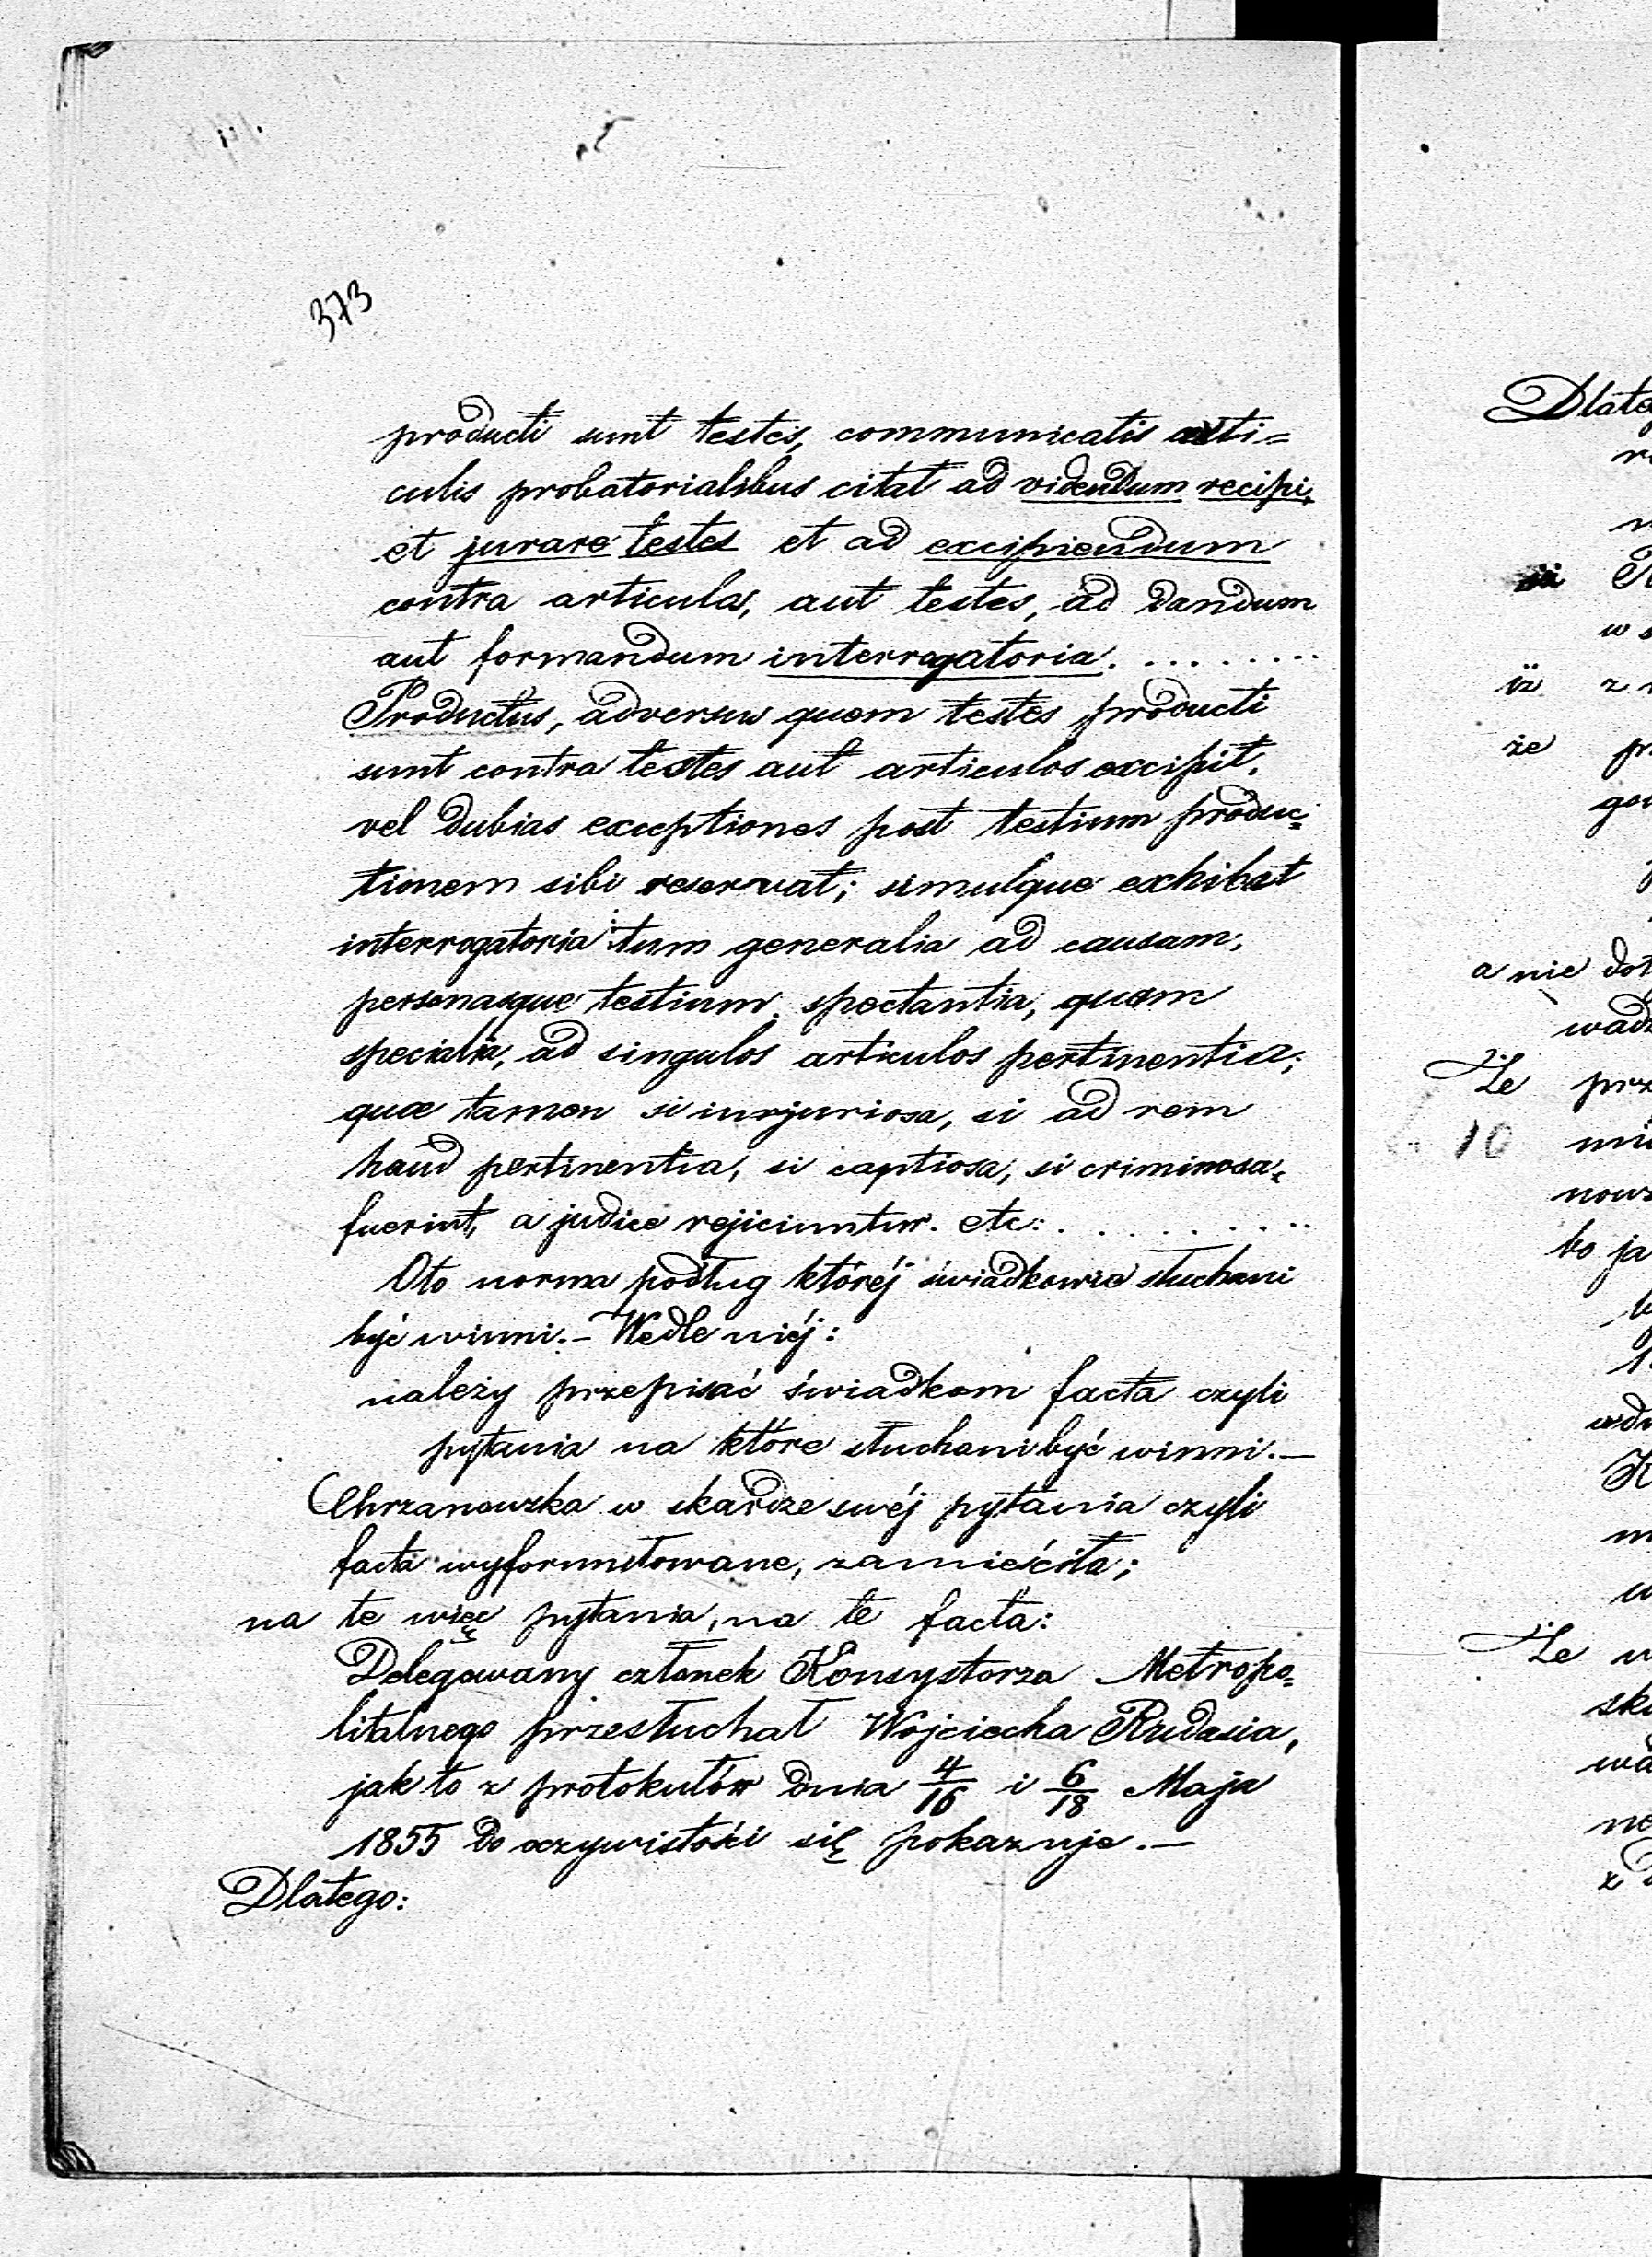 373
producti sunt testes, communicatis arti=
culis probatorialibus citat ad videndum recipi,
et jurare testes et ad excipiendum
contra articulos, aut testes, ad dandum
aut formandum interrogatoria. . . . . . . . .
Productus, adversus quem testes producti
sunt contra testes aut articulos excipit,
vel dubias exceptiones post testium produc=
tionem sibi reservat; simulque exhibet
interrogatoria: tum generalia ad causam,
personasque testium spectantia, quam
specialia, ad singulos articulos pertinentia;
quæ tamen si injuriosa, si ad rem
haud pertinentia, si captiosa, si criminosa,
fuerint, a judice rejiciuntur. etc: . . . . . . . . .
Oto norma podług któréj świadkowie słuchani
być winni. – Wedle niéj:
należy przepisać świadkom facta czyli
pytania na które słuchani być winni. —
Chrzanowska w skardze swéj pytania czyli
facta wyformułowane, zamieściła;
na te więc pytania, na te facta:
Delegowany członek Konsystorza Metropo=
litalnego przesłuchał Wojciecha Rudasia,
jak to z protokułów dnia 4/16 i 6/18 Maja
1855 do oczywistości się pokazuje. —
Dlatego:
iż
że
a nie
Że
10
bo ja
Że